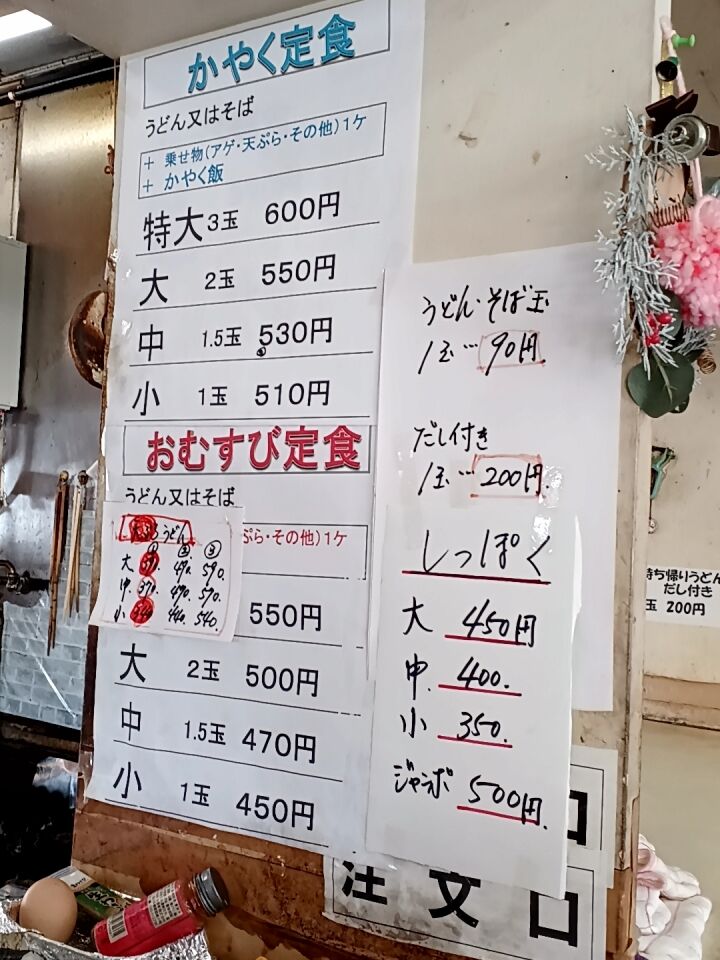 かやく定食
うどん又はそば
+ 乗せ物(アゲ・天ぷら・その他)1ケ
+ かやく飯
特大 3玉 600円
大 2玉 550円
中 1.5玉 530円
小 1玉 510円
おむすび定食
うどん又はそば
ぷら・その他)1ケ
550円
大 2玉 500円
中 1.5玉 470円
小 1玉 450円
うどん
① ② ③
大 490. 590.
中 370. 470. 570.
小 440. 540.
うどん・そば玉
1玉…90円.
だし付き
1玉…200円.
しっぽく
大 450円
中. 400.
小 350.
ジャンボ 500円.
持ち帰りうどん
だし付き
玉 200円
口
注文口